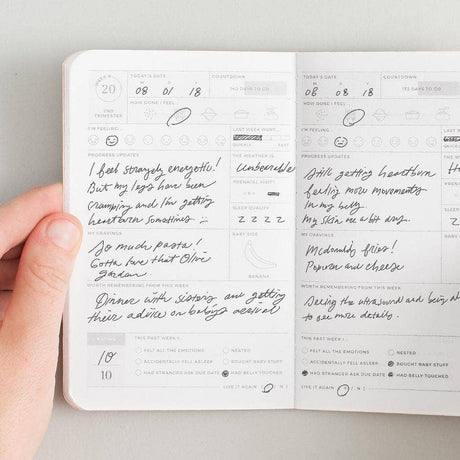 WEEK #
20
2ND
TRIMESTER
TODAY'S DATE
M D Y
08 01 18
COUNTDOWN
DAYS TO GO
HOW DOES I FEEL:
I'M FEELING...
LAST WEEK WENT...
QUICKLY EASY
PROGRESS UPDATES
I feel strangely energetic!
But my legs have been
cramping and I'm getting
heartburn sometimes :(
THE WEATHER IS
Unbearable
PRENATAL VISIT
SLEEP QUALITY
Z Z Z Z
MY CRAVINGS
So much pasta!
Gotta love that Olive
Garden
BABY SIZE
BANANA
WORTH REMEMBERING FROM THIS WEEK
Dinner with sisters and getting
their advice on baby's arrival
RATING
10
10
THIS PAST WEEK I...
FELT ALL THE EMOTIONS
NESTED
ACCIDENTALLY FELL ASLEEP
BOUGHT BABY STUFF
HAD STRANGERS ASK DUE DATE
HAD BELLY TOUCHED
LIVE IT AGAIN Y / N
TODAY'S DATE
M D Y
08 08 18
COUNTDOWN
DAYS TO GO
I'M FEELING...
PROGRESS UPDATES
Still getting heartburn
feeling more movements
in my belly.
My skin
MY CRAVINGS
Mcdonalds fries!
and cheese
WORTH REMEMBERING FROM THIS WEEK
Seeing the ultrasound and being
to see more details.
THIS PAST WEEK I...
FELT ALL THE EMOTIONS
NESTED
ACCIDENTALLY FELL ASLEEP
BOUGHT BABY STUFF
HAD STRANGERS ASK DUE DATE
HAD BELLY TOUCHED
LIVE IT AGAIN Y / N